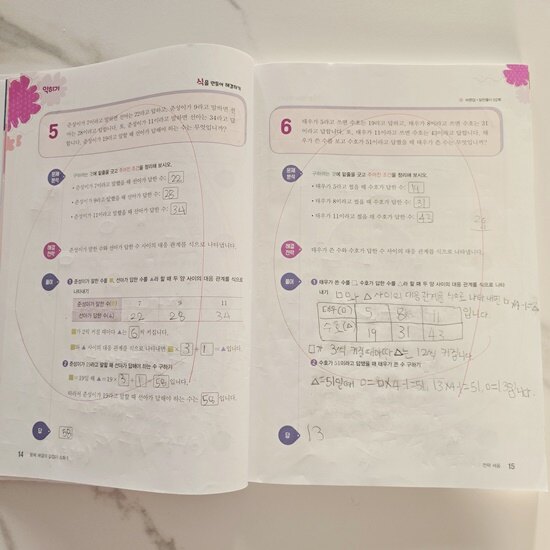 익히기
식을 만들어 해결하기
5
준성이가 7이라고 말하면 선아는 22라고 답하고, 준성이가 9라고 말하면 선
아는 28이라고 답합니다. 또, 준성이가 11이라고 말하면 선아는 34라고 답
합니다. 준성이가 19라고 말할 때 선아가 답해야 하는 수는 무엇입니까?
문제 분석
구하려는 것에 밑줄을 긋고 주어진 조건을 정리해 보시오.
• 준성이가 7이라고 말했을 때 선아가 답한 수: 22
• 준성이가 9라고 말했을 때 선아가 답한 수: 28
• 준성이가 11이라고 말했을 때 선아가 답한 수: 34
해결 전략
준성이가 말한 수와 선아가 답한 수 사이의 대응 관계를 식으로 나타냅니다.
풀이
❶ 준성이가 말한 수를 ■, 선아가 답한 수를 ▲라 할 때 두 양 사이의 대응 관계를 식으로
나타내기
준성이가 말한 수(■) 7 9 11
선아가 답한 수(▲) 22 28 34
■가 2씩 커질 때마다 ▲는 6씩 커집니다.
■와 ▲ 사이의 대응 관계를 식으로 나타내면 ■×3+1=▲입니다.
❷ 준성이가 19라고 말할 때 선아가 답해야 하는 수 구하기
■=19일 때 ▲=19×3+1=58입니다.
따라서 준성이가 19라고 말할 때 선아가 답해야 하는 수는 58입니다.
답
58
14
6
태우가 5라고 쓰면 수호는 19라고 답하고, 태우가 8이라고 쓰면 수호는 31
이라고 답합니다. 또, 태우가 11이라고 쓰면 수호는 43이라고 답합니다. 태우
가 쓴 수를 보고 수호가 51이라고 답했을 때 태우가 쓴 수는 무엇입니까?
문제 분석
구하려는 것에 밑줄을 긋고 주어진 조건을 정리해 보시오.
• 태우가 5라고 썼을 때 수호가 답한 수: 19
• 태우가 8이라고 썼을 때 수호가 답한 수: 31
• 태우가 11이라고 썼을 때 수호가 답한 수: 43
해결 전략
태우가 쓴 수와 수호가 답한 수 사이의 대응 관계를 식으로 나타냅니다.
풀이
❶ 태우가 쓴 수를 □, 수호가 답한 수를 △라 할 때 두 양 사이의 대응 관계를 식으로 나타
내기
□와 △ 사이의 대응 관계를 식으로 나타내면 □×4-1=△
입니다.
태우(□) 5 8 11
수호(△) 19 31 43
□가 3씩 커질 때마다 △는 12씩 커집니다.
❷ 수호가 51이라고 답했을 때 태우가 쓴 수 구하기
△=51일 때 □×4-1=51, 13×4-1=51, □=13입니다.
답
13
전략 세움 15